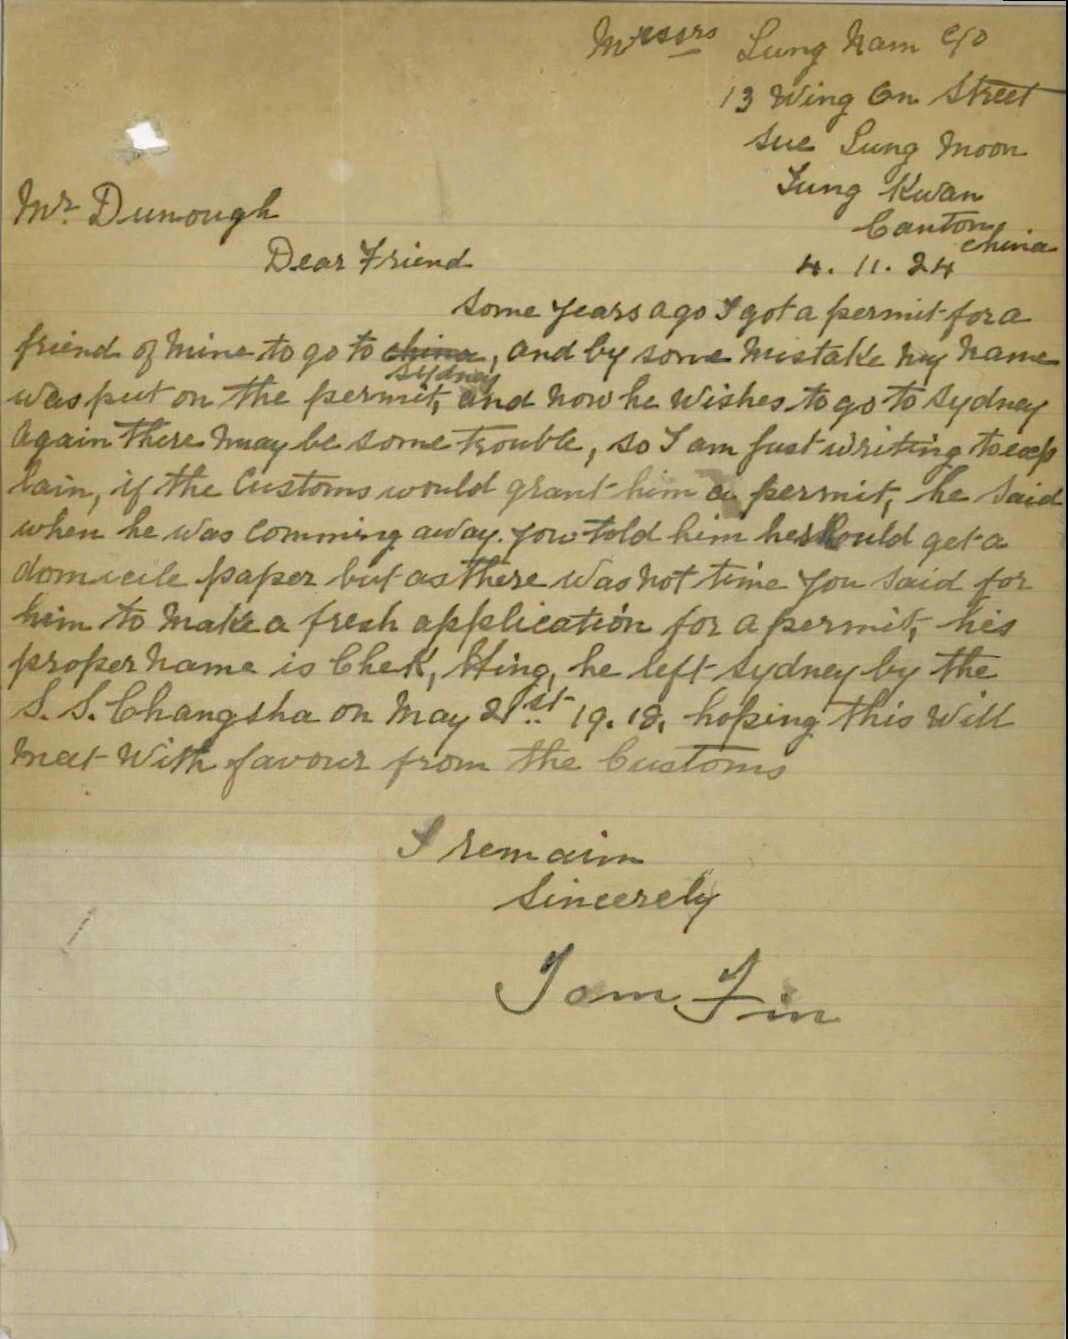 Messrs Lung Nam c/o
13 Wing On Street
Sue Lung Moon
Tung Kwan
Canton
China
4. 11. 24
Mr. Dunough
Dear Friend
Some years ago I got a permit for a
friend of mine to go to china, and by some mistake my name
Sydney
was put on the permit, and now he wishes to go to Sydney
again there may be some trouble, so I am just writing to exp
lain, if the Customs would grant him a permit, he said
when he was comming away. you told him he should get a
domicile paper but as there was not time you said for
him to make a fresh application for a permit, his
proper name is Chek, Hing, he left Sydney by the
S. S. Changsha on May 21st 19. 18. hoping this will
meet with favour from the Customs
I remain
Sincerely
Tom Fin